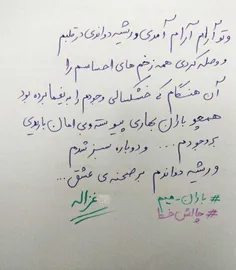 و تو آرام آرام آمدی و ریشه دواندی در قلبم
و وصله کردی همه زخم های احساسم را
آن هنگام که خشکسالی وجودم را به یغما برده بود
همچو باران بهاری پیوسته و بی امان باریدی
بر وجودم .... و دوباره سبز شدم
و ریشه دواندم بر صحنه ی عشق ...
#باران_میم غزاله
#چالش خط